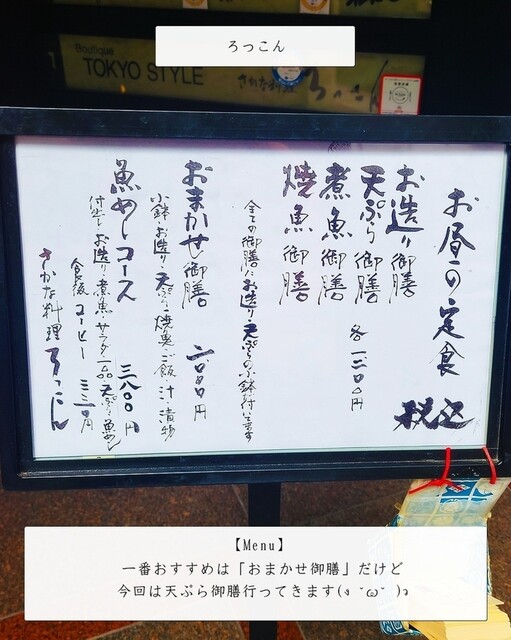 ろっこん
Boutique
TOKYO STYLE
さかな料理
お昼の定食
税込
お造り御膳
天ぷら御膳
煮魚御膳
焼魚御膳
各一三〇〇円
全ての御膳にお造り、天ぷらの小鉢が付いてます
おまかせ御膳
二〇〇〇円
小鉢、お造り、天ぷら、焼魚、ご飯、汁、漬物
魚めしコース
三八〇〇円
付出し、お造り、煮魚、サラダ、一品、天ぷら、魚めし
食後コーヒー 三三〇円
さかな料理 ろっこん
【Menu】
一番おすすめは「おまかせ御膳」だけど
今回は天ぷら御膳行ってきます(ง ˘ω˘ )ว